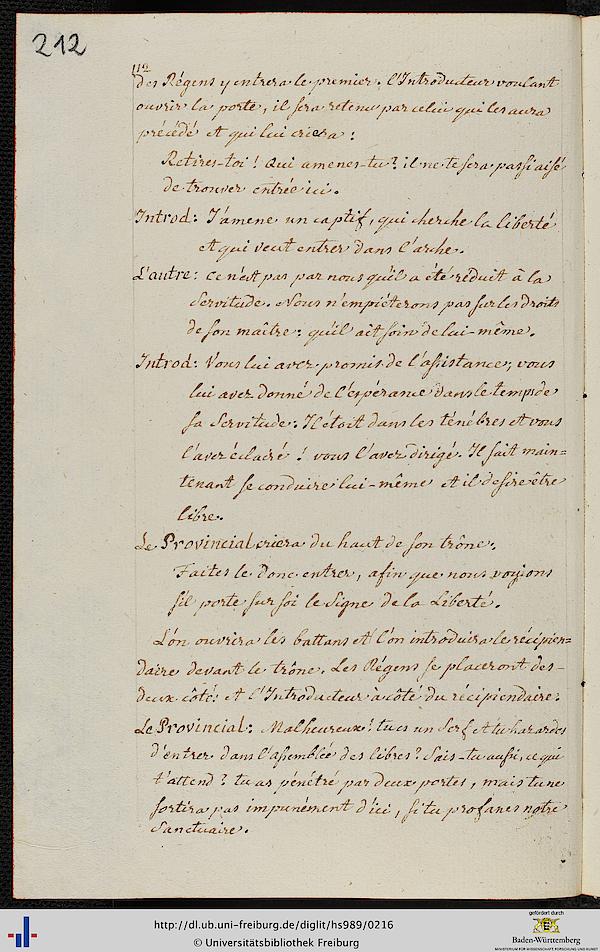 212
112
des Régens y entrera le premier. l'Introducteur voulant
ouvrir la porte, il sera retenu par celui qui les aura
précédé et qui lui criera:
Retires-toi! Qui amenes-tu? il ne te sera pas si aisé
de trouver entrée ici.
Introd: J'amene un captif, qui cherche la liberté
et qui veut entrer dans l'arche.
L'autre: Ce n'est pas par nous qu'il a été réduit à la
Servitude. Nous n'empiéterons pas sur les droits
de son maître: qu'il ait soin de lui-même.
Introd: Vous lui avez promis de l'assistance, vous
lui avez donné de l'espérance dans le temps de
sa Servitude. Il étoit dans les ténébres et vous
l'avez éclairé! vous l'avez dirigé. Il sait main=
tenant se conduire lui-même et il desire être
libre.
Le Provincial criera du haut de son trône.
Faites le donc entrer, afin que nous voyions
s'il porte sur soi le Signe de la Liberté.
L'on ouvrira les battans et l'on introduira le récipien=
daire devant le trône. Les Régens se placeront des-
deux côté: et l'Introducteur à côté du récipiendaire:
Le Provincial: Malheureux! tu es un Serf et tu hazardes
d'entrer dans l'assemblée des libres? Sais-tu aussi, ce qui
t'attend? tu as pénétré par deux portes, mais tu ne
sortira pas impunément d'ici, si tu profanes notre
Sanctuaire.
http://dl.ub.uni-freiburg.de/diglit/hs989/0216
© Universitätsbibliothek Freiburg
gefördert durch
Baden-Württemberg
MINISTERIUM FÜR WISSENSCHAFT, FORSCHUNG UND KUNST